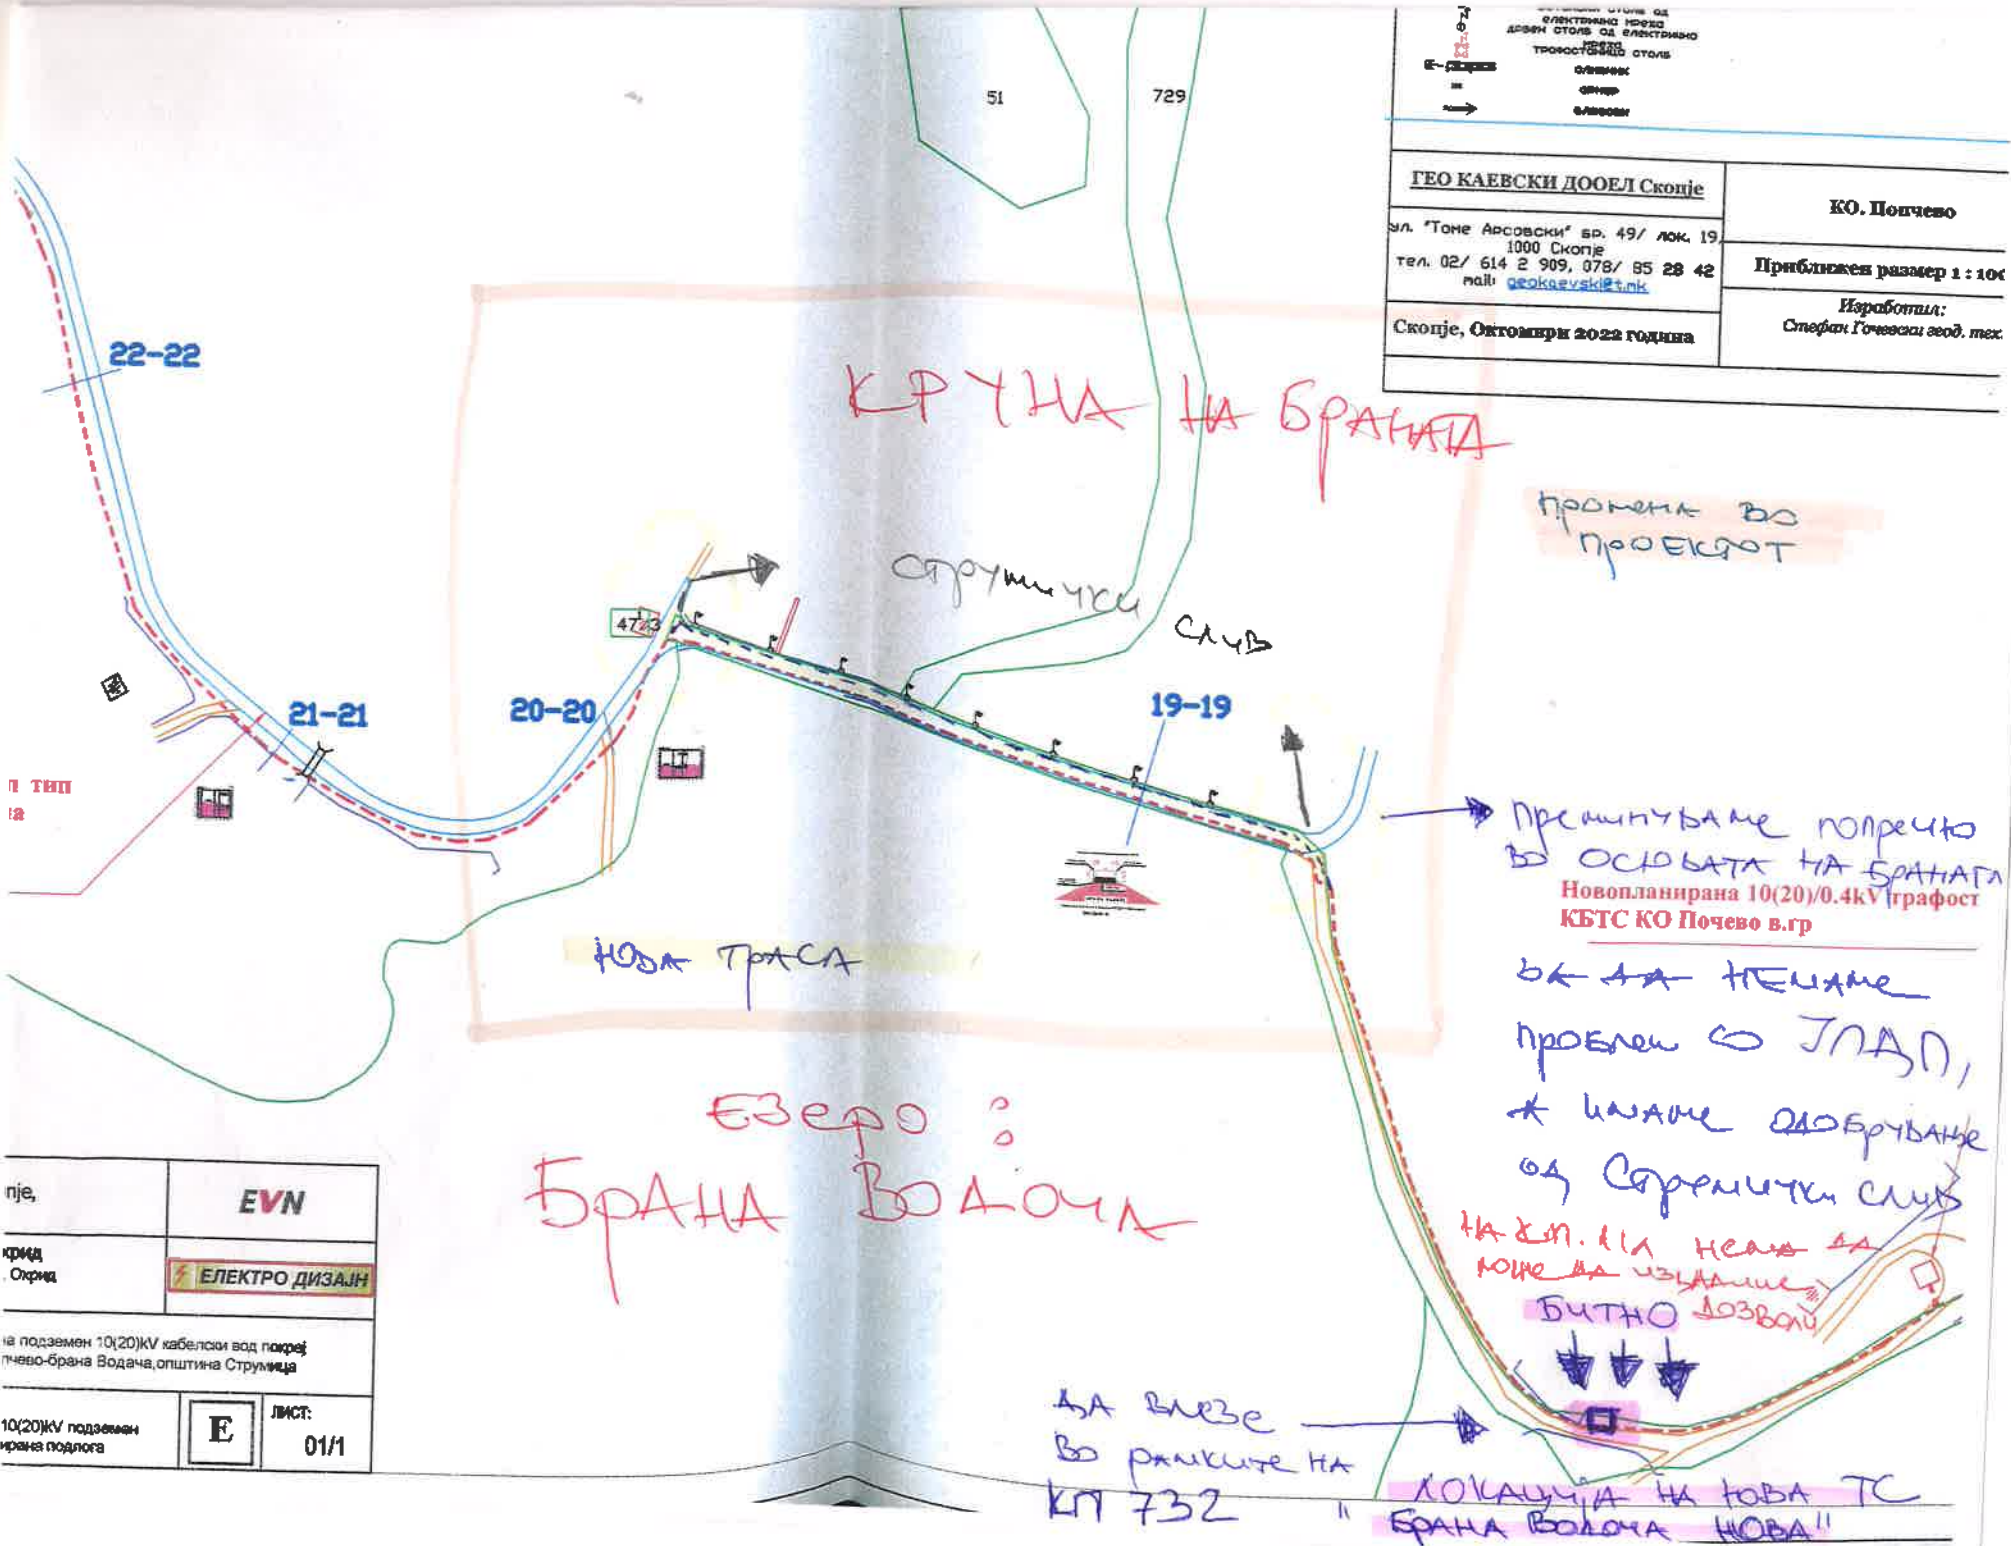 електрична мрежа
дрвен столб од електрична
мрежа
трафостаница столб
51
729
ГЕО КАЕВСКИ ДООЕЛ Скопје
КО. Попчево
ул. "Томе Арсовски" бр. 49/ лок. 19,
1000 Скопје
тел. 02/ 614 2 909, 078/ 85 28 42
mail: geokaevski@t.mk
Приближен размер 1 : 100
Изработил:
Стефан Гочевски геод. тех.
Скопје, Октомври 2022 година
22-22
КРУНА НА БРАНАТА
ПРОМЕНА ВО
ПРОЕКТОТ
СТРУМИЧКИ
СЛИВ
4723
21-21
20-20
19-19
п тип
на
ПРЕМИНУВАМЕ ПОПРЕЧНО
ВО ОСНОВАТА НА БРАНАТА
Новопланирана 10(20)/0.4kV трафост
КБТС КО Почево в.гр
НОВА ТРАСА
ЗА ДА НЕМАМЕ
ПРОБЛЕМ СО
А ИМАМЕ ОДОБРУВАЊЕ
ОД Стремички СЛИВ
ЕЗЕРО :
БРАНА ВОДОЧА
НЕМА ДА
МОЖЕ ДА
ДОЗВОЛИ
БИТНО
пје,
EVN
хрид
. Охрид
ЕЛЕКТРО ДИЗАЈН
на подземен 10(20)kV кабелски вод покрај
пчево-брана Водача,општина Струмица
10(20)kV подземен
ирана подлога
E
ЛИСТ:
01/1
ДА ВЛЕЗЕ
ВО РАМКИТЕ НА
КП 732
" ЛОКАЦИЈА НА НОВА ТС
БРАНА ВОДОЧА НОВА"